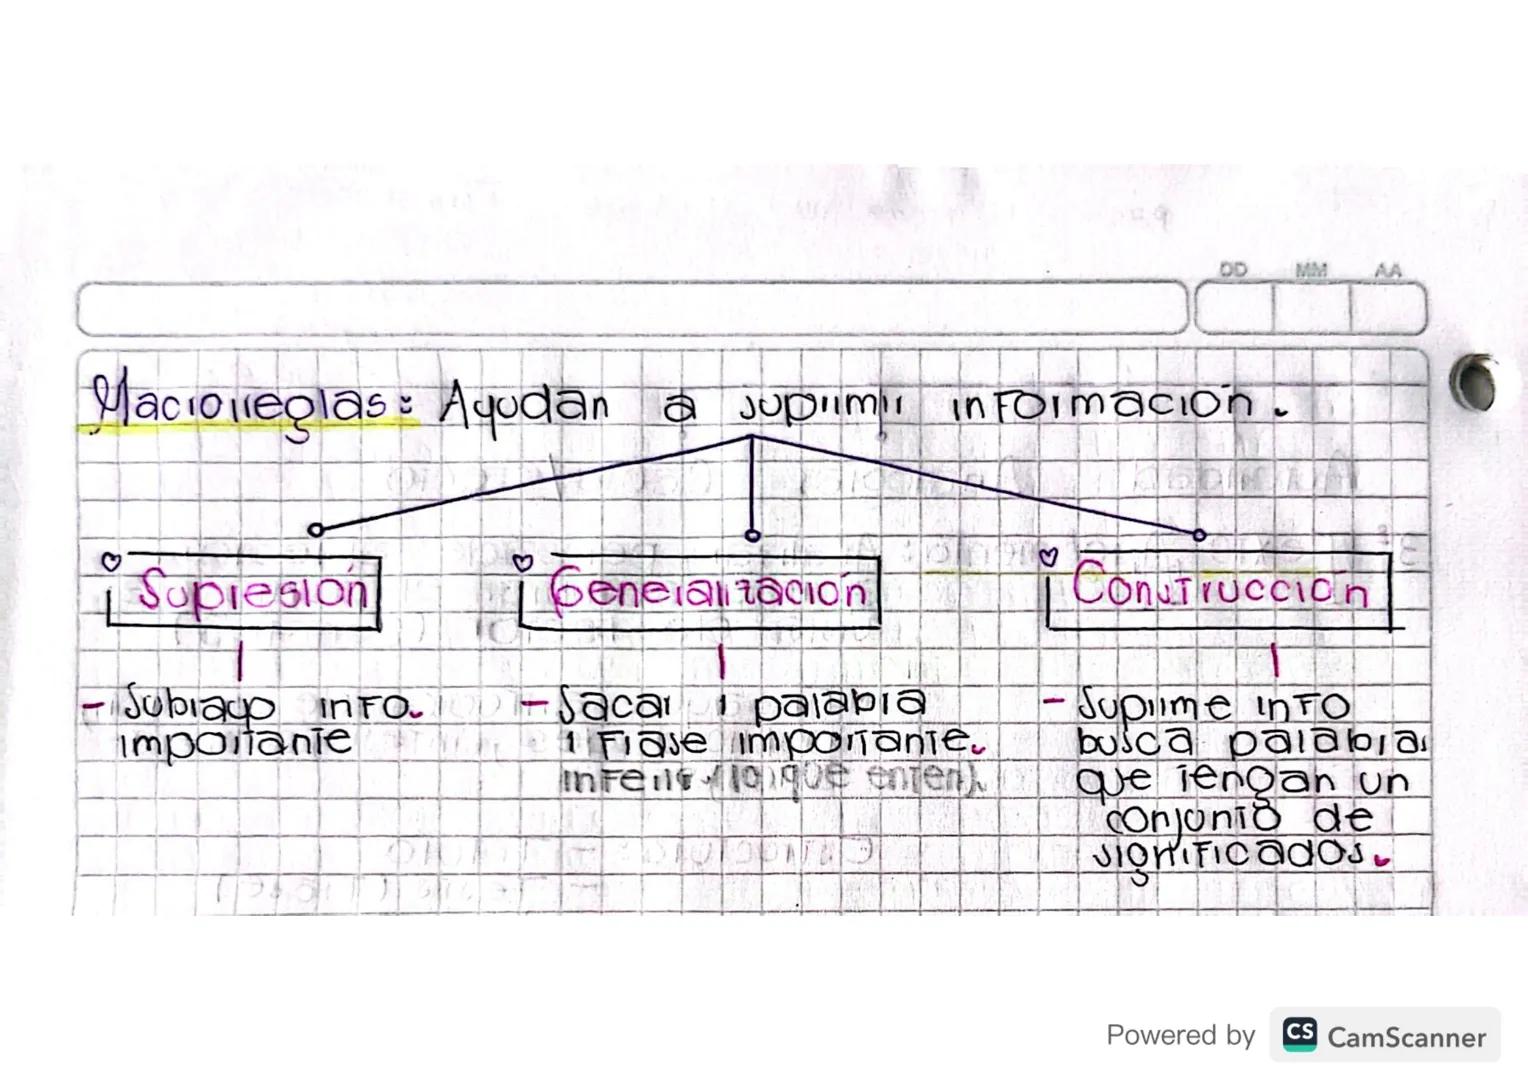 DD MM AA
Macrorreglas: Ayudan a suprimir información.
Supresión
Generalización
Construcción
- Subrayo info.
importante
- Sacar 1 palabra
1 frase importante.
inferir (lo que enten).
- Suprime info
busca palabras
que tengan un
conjunto de
significados.
Powered by CS CamScanner